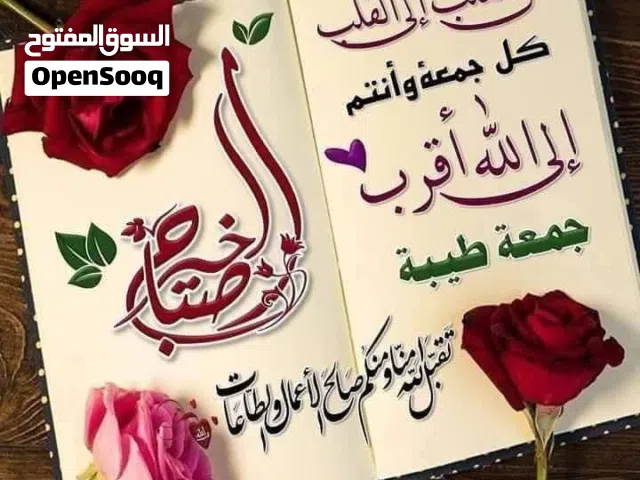 السوق المفتوح
OpenSooq
القلب إلى القلب
كل جمعة وأنتم
إلى الله أقرب
جمعة طيبة
صباح الخير
تقبل الله منا ومنكم صالح الأعمال والطاعات